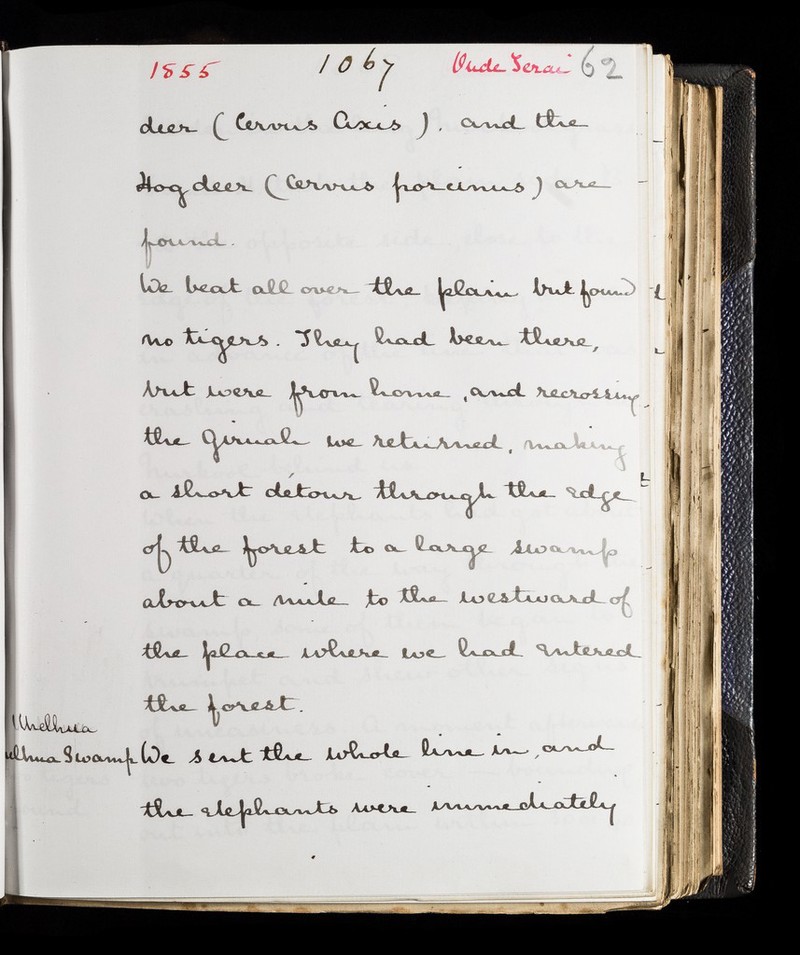 1855 1067 Oude Terai 62
deer (Cervus Axis), and the
Hog deer (Cervus porcinus) are
found.
We beat all over the plain but found
no tigers. They had been there,
but were from home, and recrossing
the Giruah we returned, making
a short détour through the edge
of the forest to a large swamp
about a mile to the westward of
the place where we had entered
the forest.
Swamp We sent the whole line in, and
the elephants were immediately